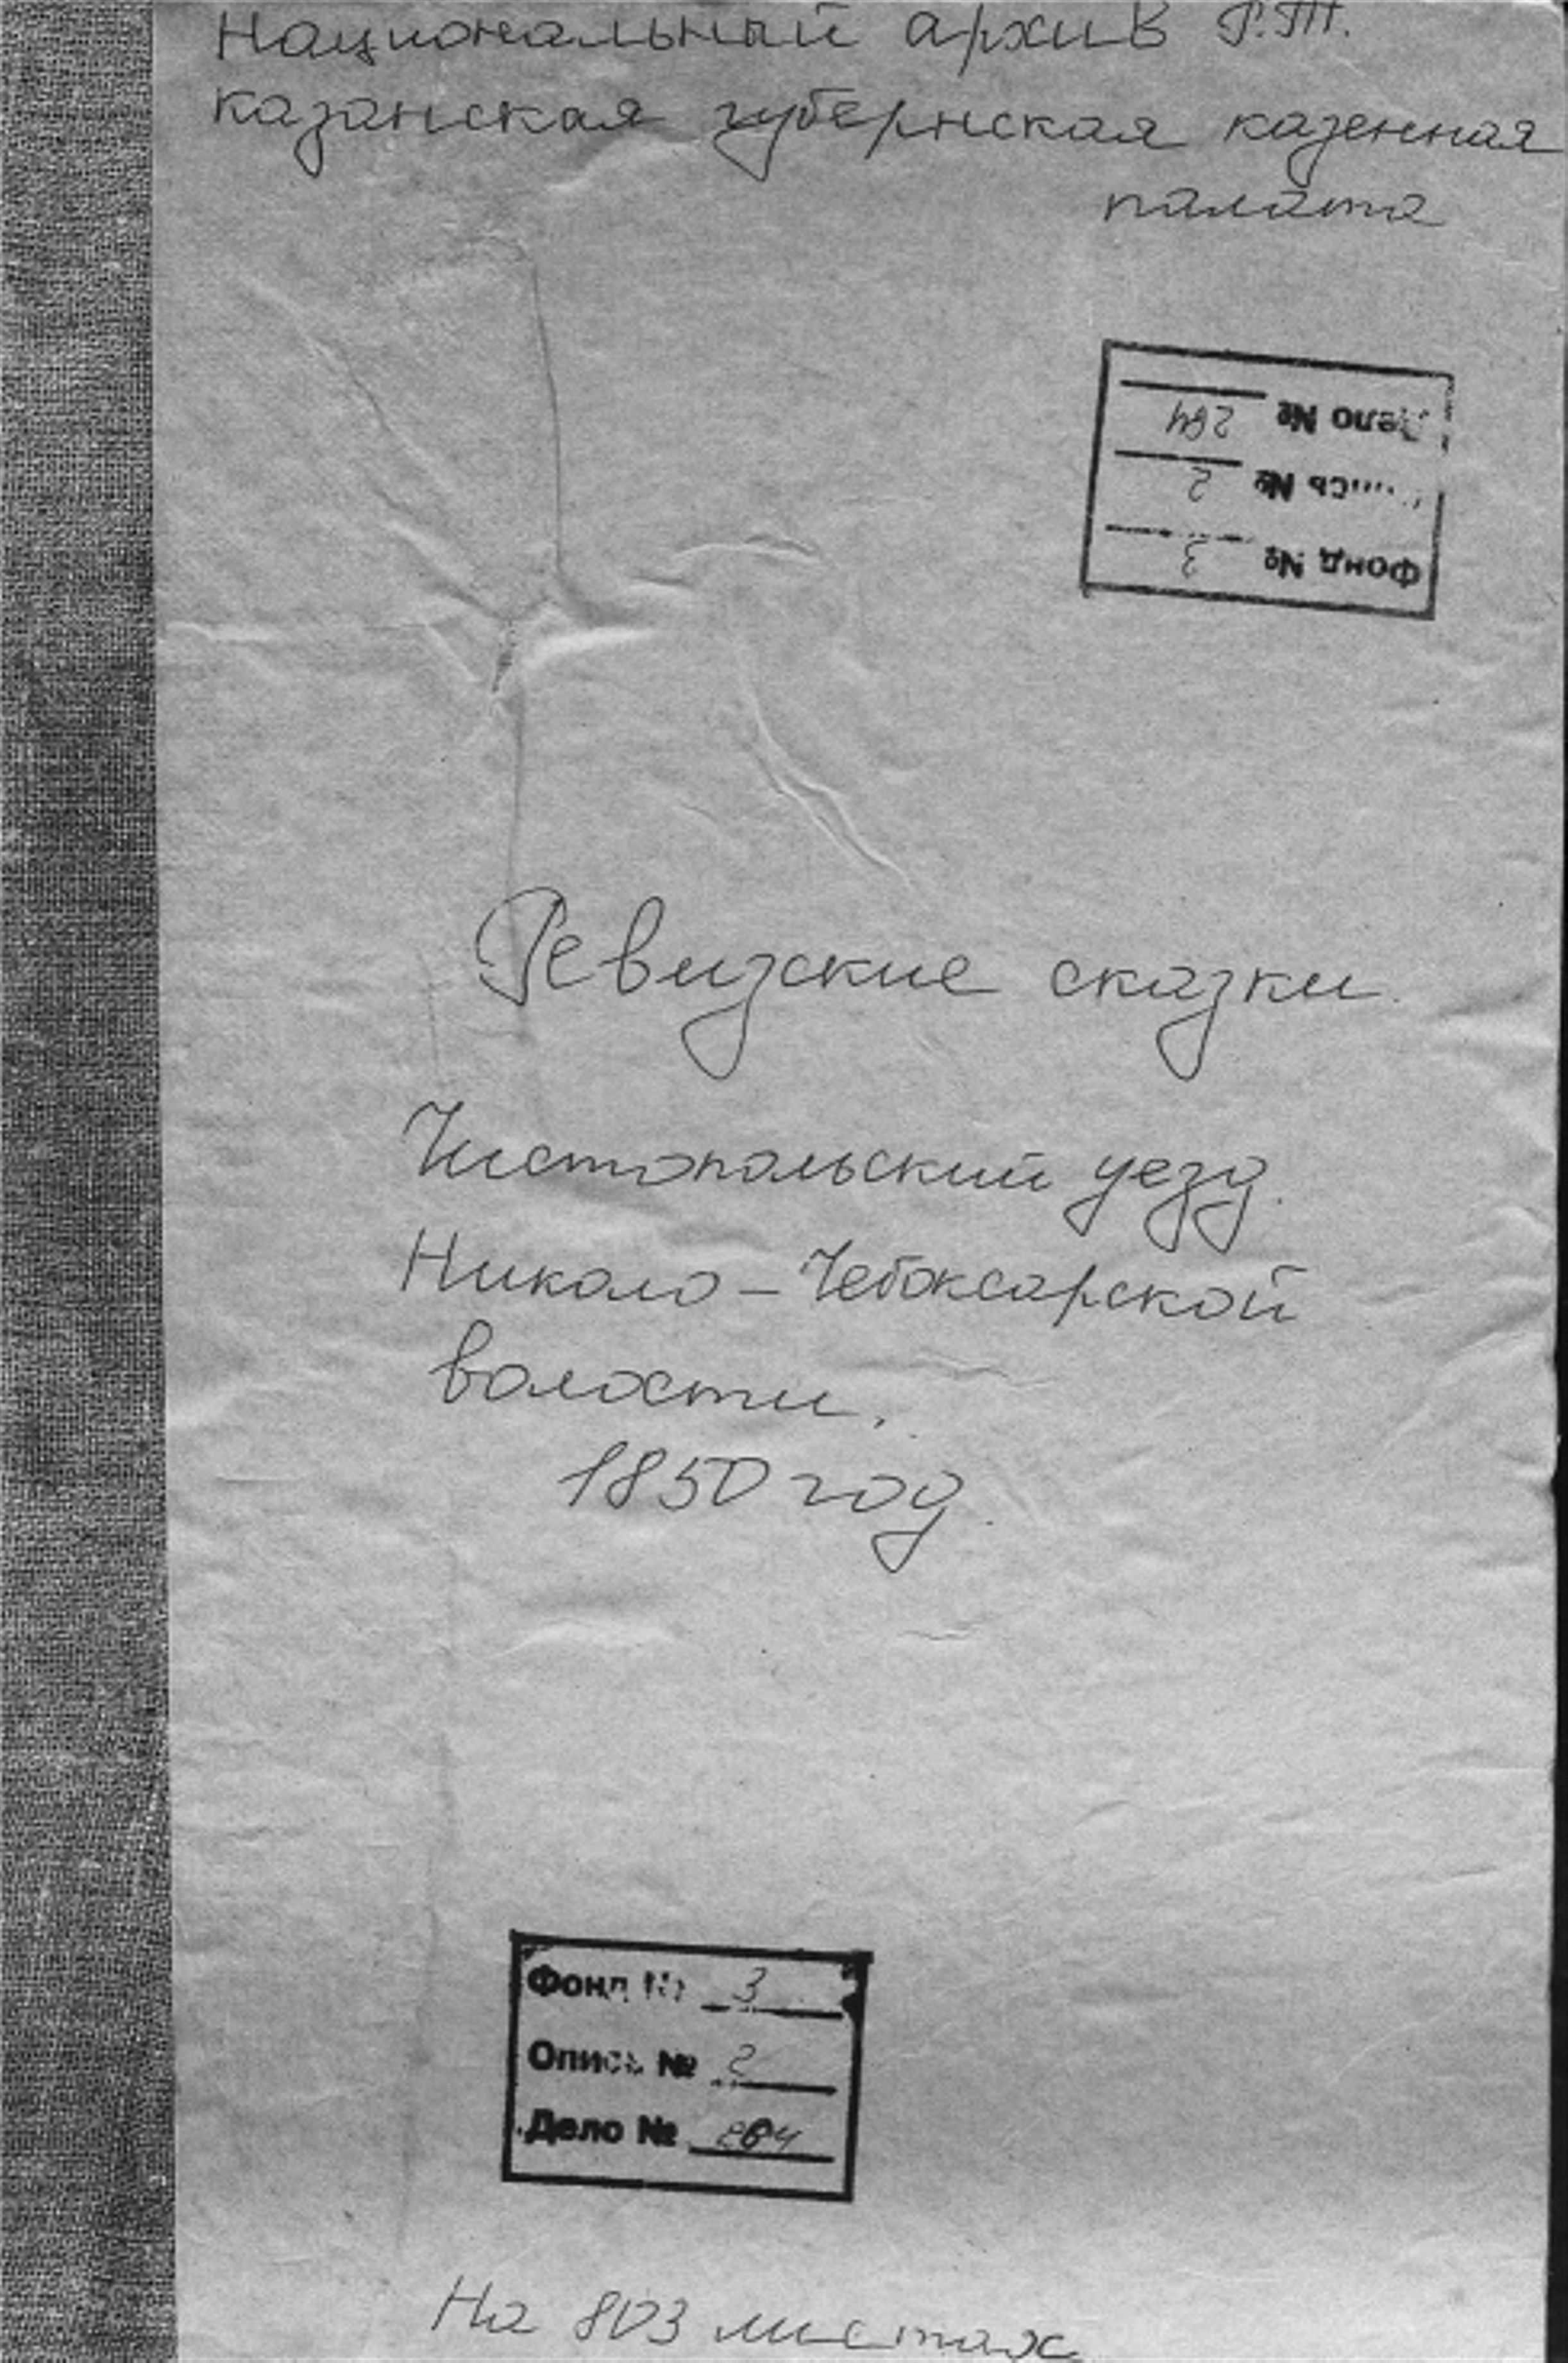 Национальный архив Р.Т.
казанская губернская казенная
палата
Дело № 264
Опись № 2
Фонд № 3
Ревизские сказки
Чистопольский уезд.
Николо-Чебоксарской
волости.
1850 год.
Фонд № 3
Опись № 2
Дело № 264
На 803 листах